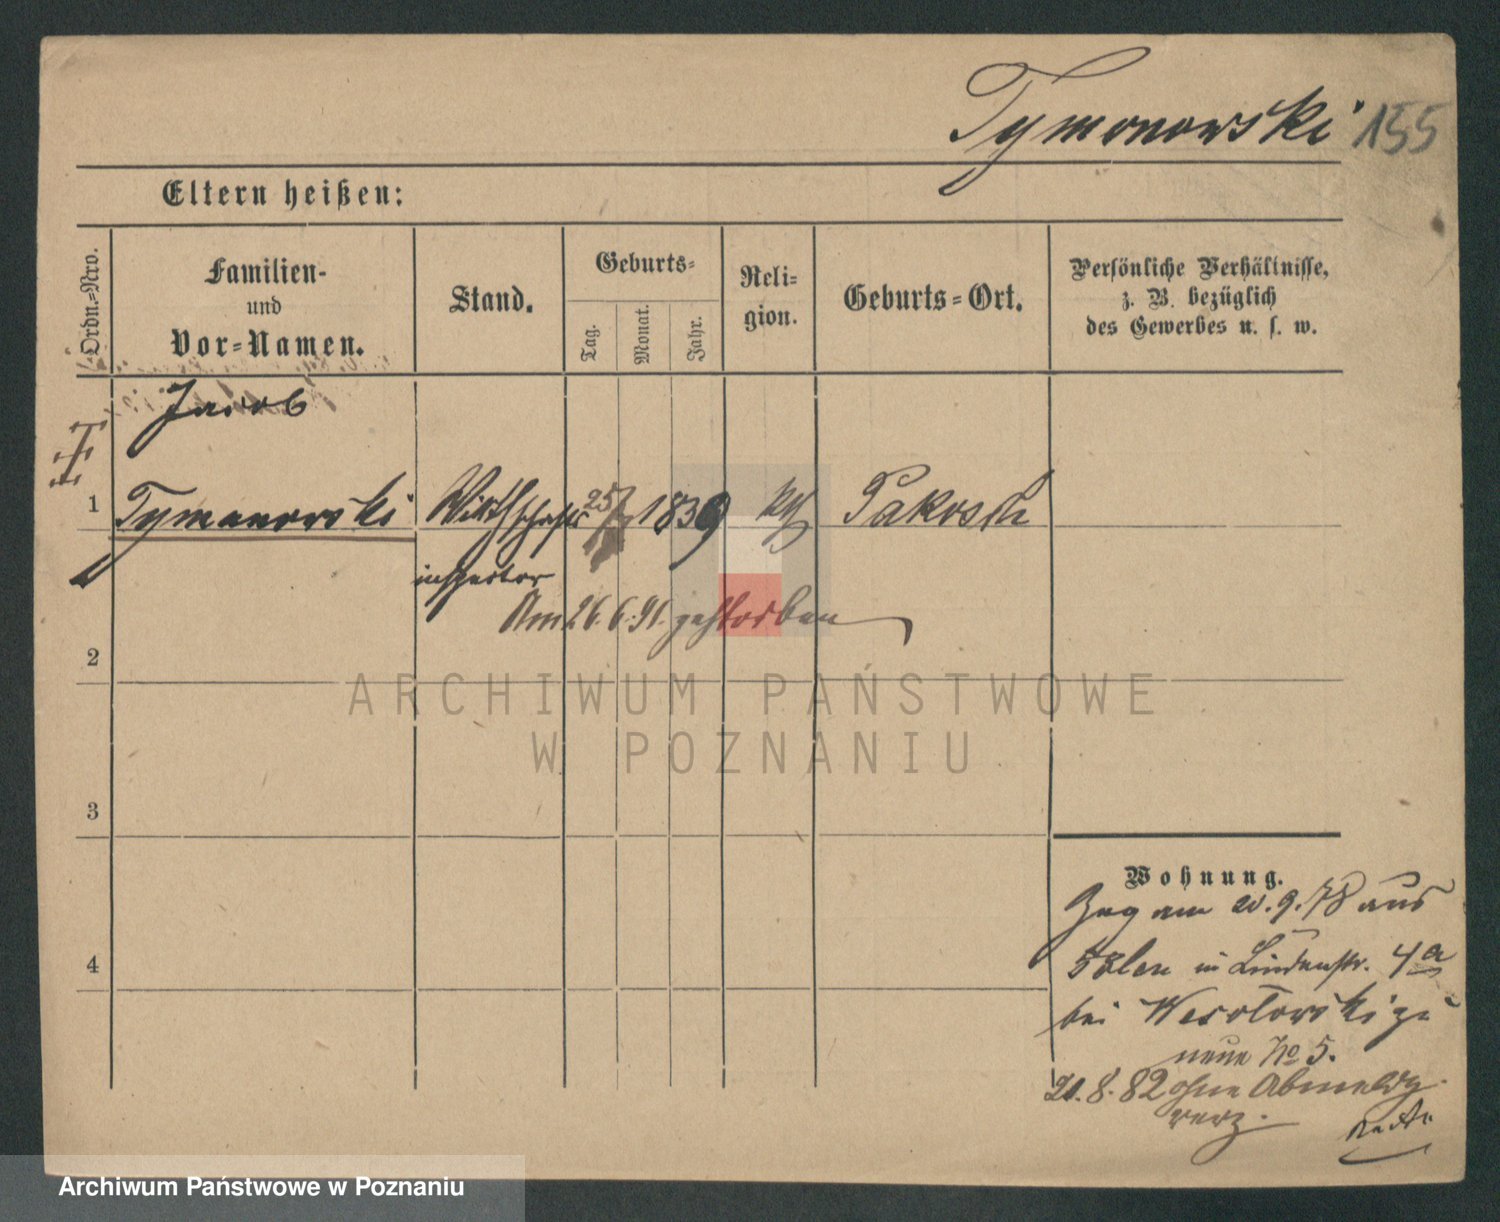 Tymonowski 155
Eltern heißen:
Ordn.=Nro.
Familien-
und
Vor=Namen.
Stand.
Geburts=
Tag.
Monat.
Jahr.
Reli=
gion.
Geburts=Ort.
Persönliche Verhältnisse,
z. B. bezüglich
des Gewerbes u. s. w.
Jacob
1 Tymanowski Wirthschafts 25/7 1839 kth Pakosch
inspector
Am 26.6.91. gestorben
2
ARCHIWUM PAŃSTWOWE
W POZNANIU
3
Wohnung.
Zug am 20.9.78 aus
in Lindenstr. 4a
4
bei Wesolowski
neue No 5.
21.8.82 ohne Abmeldg.
verz.
Archiwum Państwowe w Poznaniu